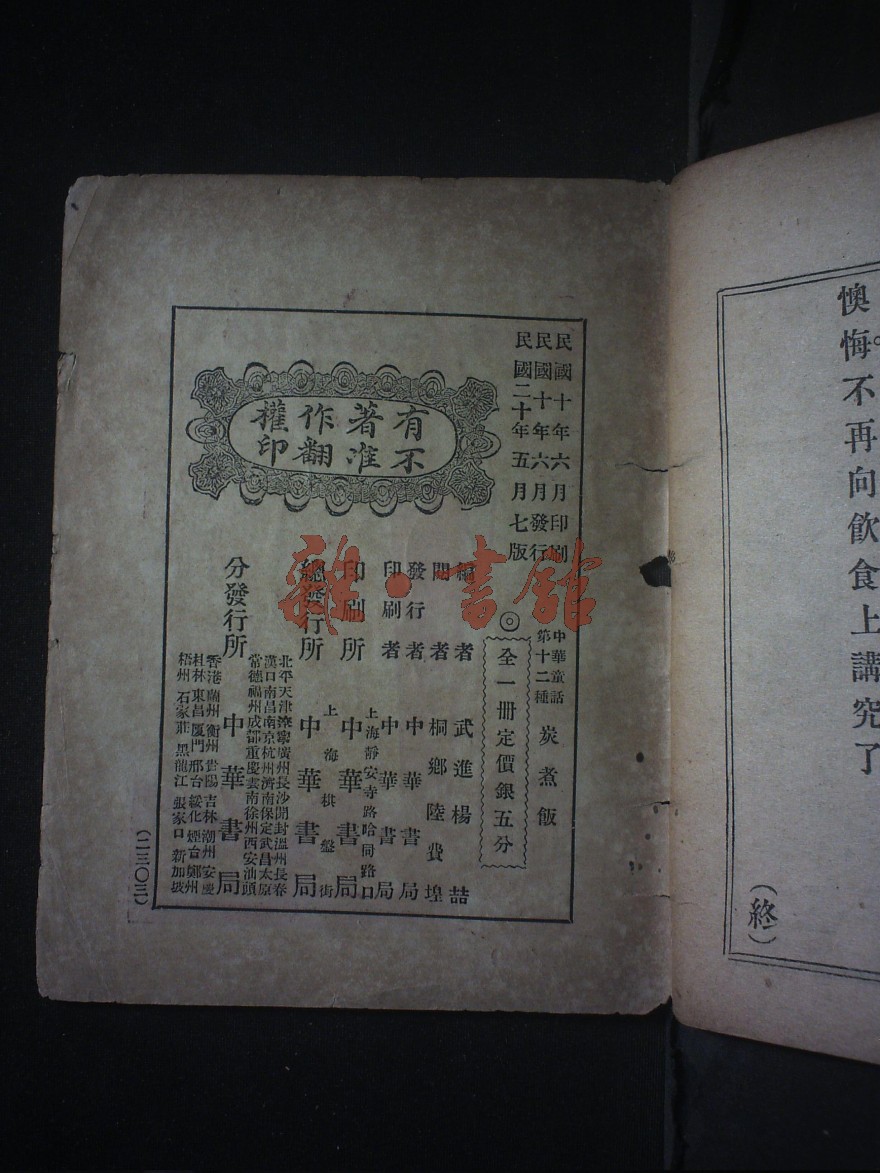 懊悔。不再向飲食上講究了
(終)
民國十年六月印刷
民國十年六月發行
民國二十年五月七版
有著作權
不准翻印
中華童話
第十二種
炭煮飯
◎
全一冊定價銀五分
編者 武進楊喆
閱者 桐鄉陸費堭
發行者 中華書局
印刷者 中華書局
上海靜安寺路哈同路口
印刷所 中華書局
上海棋盤街
總發行所 中華書局
北平天津遼寧廣州長沙開封溫州長春
漢口南昌南京杭州濟南保定武昌太原
常德福州成都重慶雲南徐州西安汕頭
分發行所 中華書局
香港蘭州衡州貴陽吉林潮州安慶
桂林東昌廈門邢台綏化煙台鄭州
梧州石家莊黑龍江張家口新加坡
(二三〇三)
雜·書館